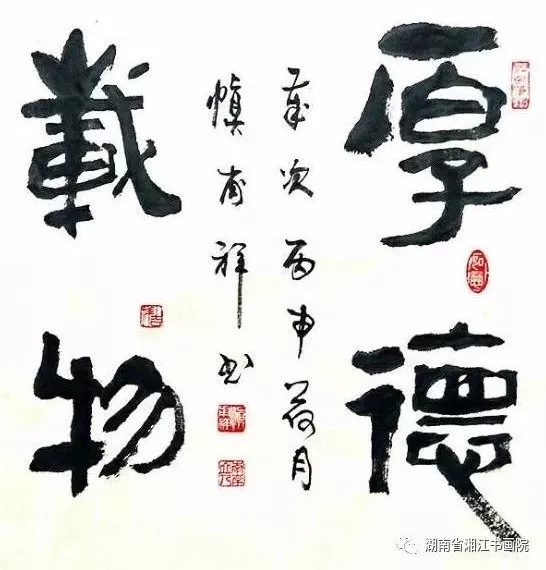 厚德
載物
歲次丙申荷月
慎甫祥书
湖南省湘江书画院